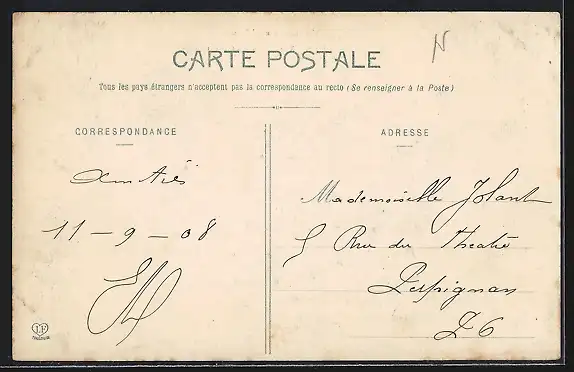 N
CARTE POSTALE
Tous les pays étrangers n'acceptent pas la correspondance au recto (Se renseigner à la Poste)
CORRESPONDANCE
ADRESSE
Amitiés
11-9-08
Mademoiselle Jolant
5 Rue du Theatre
Perpignan